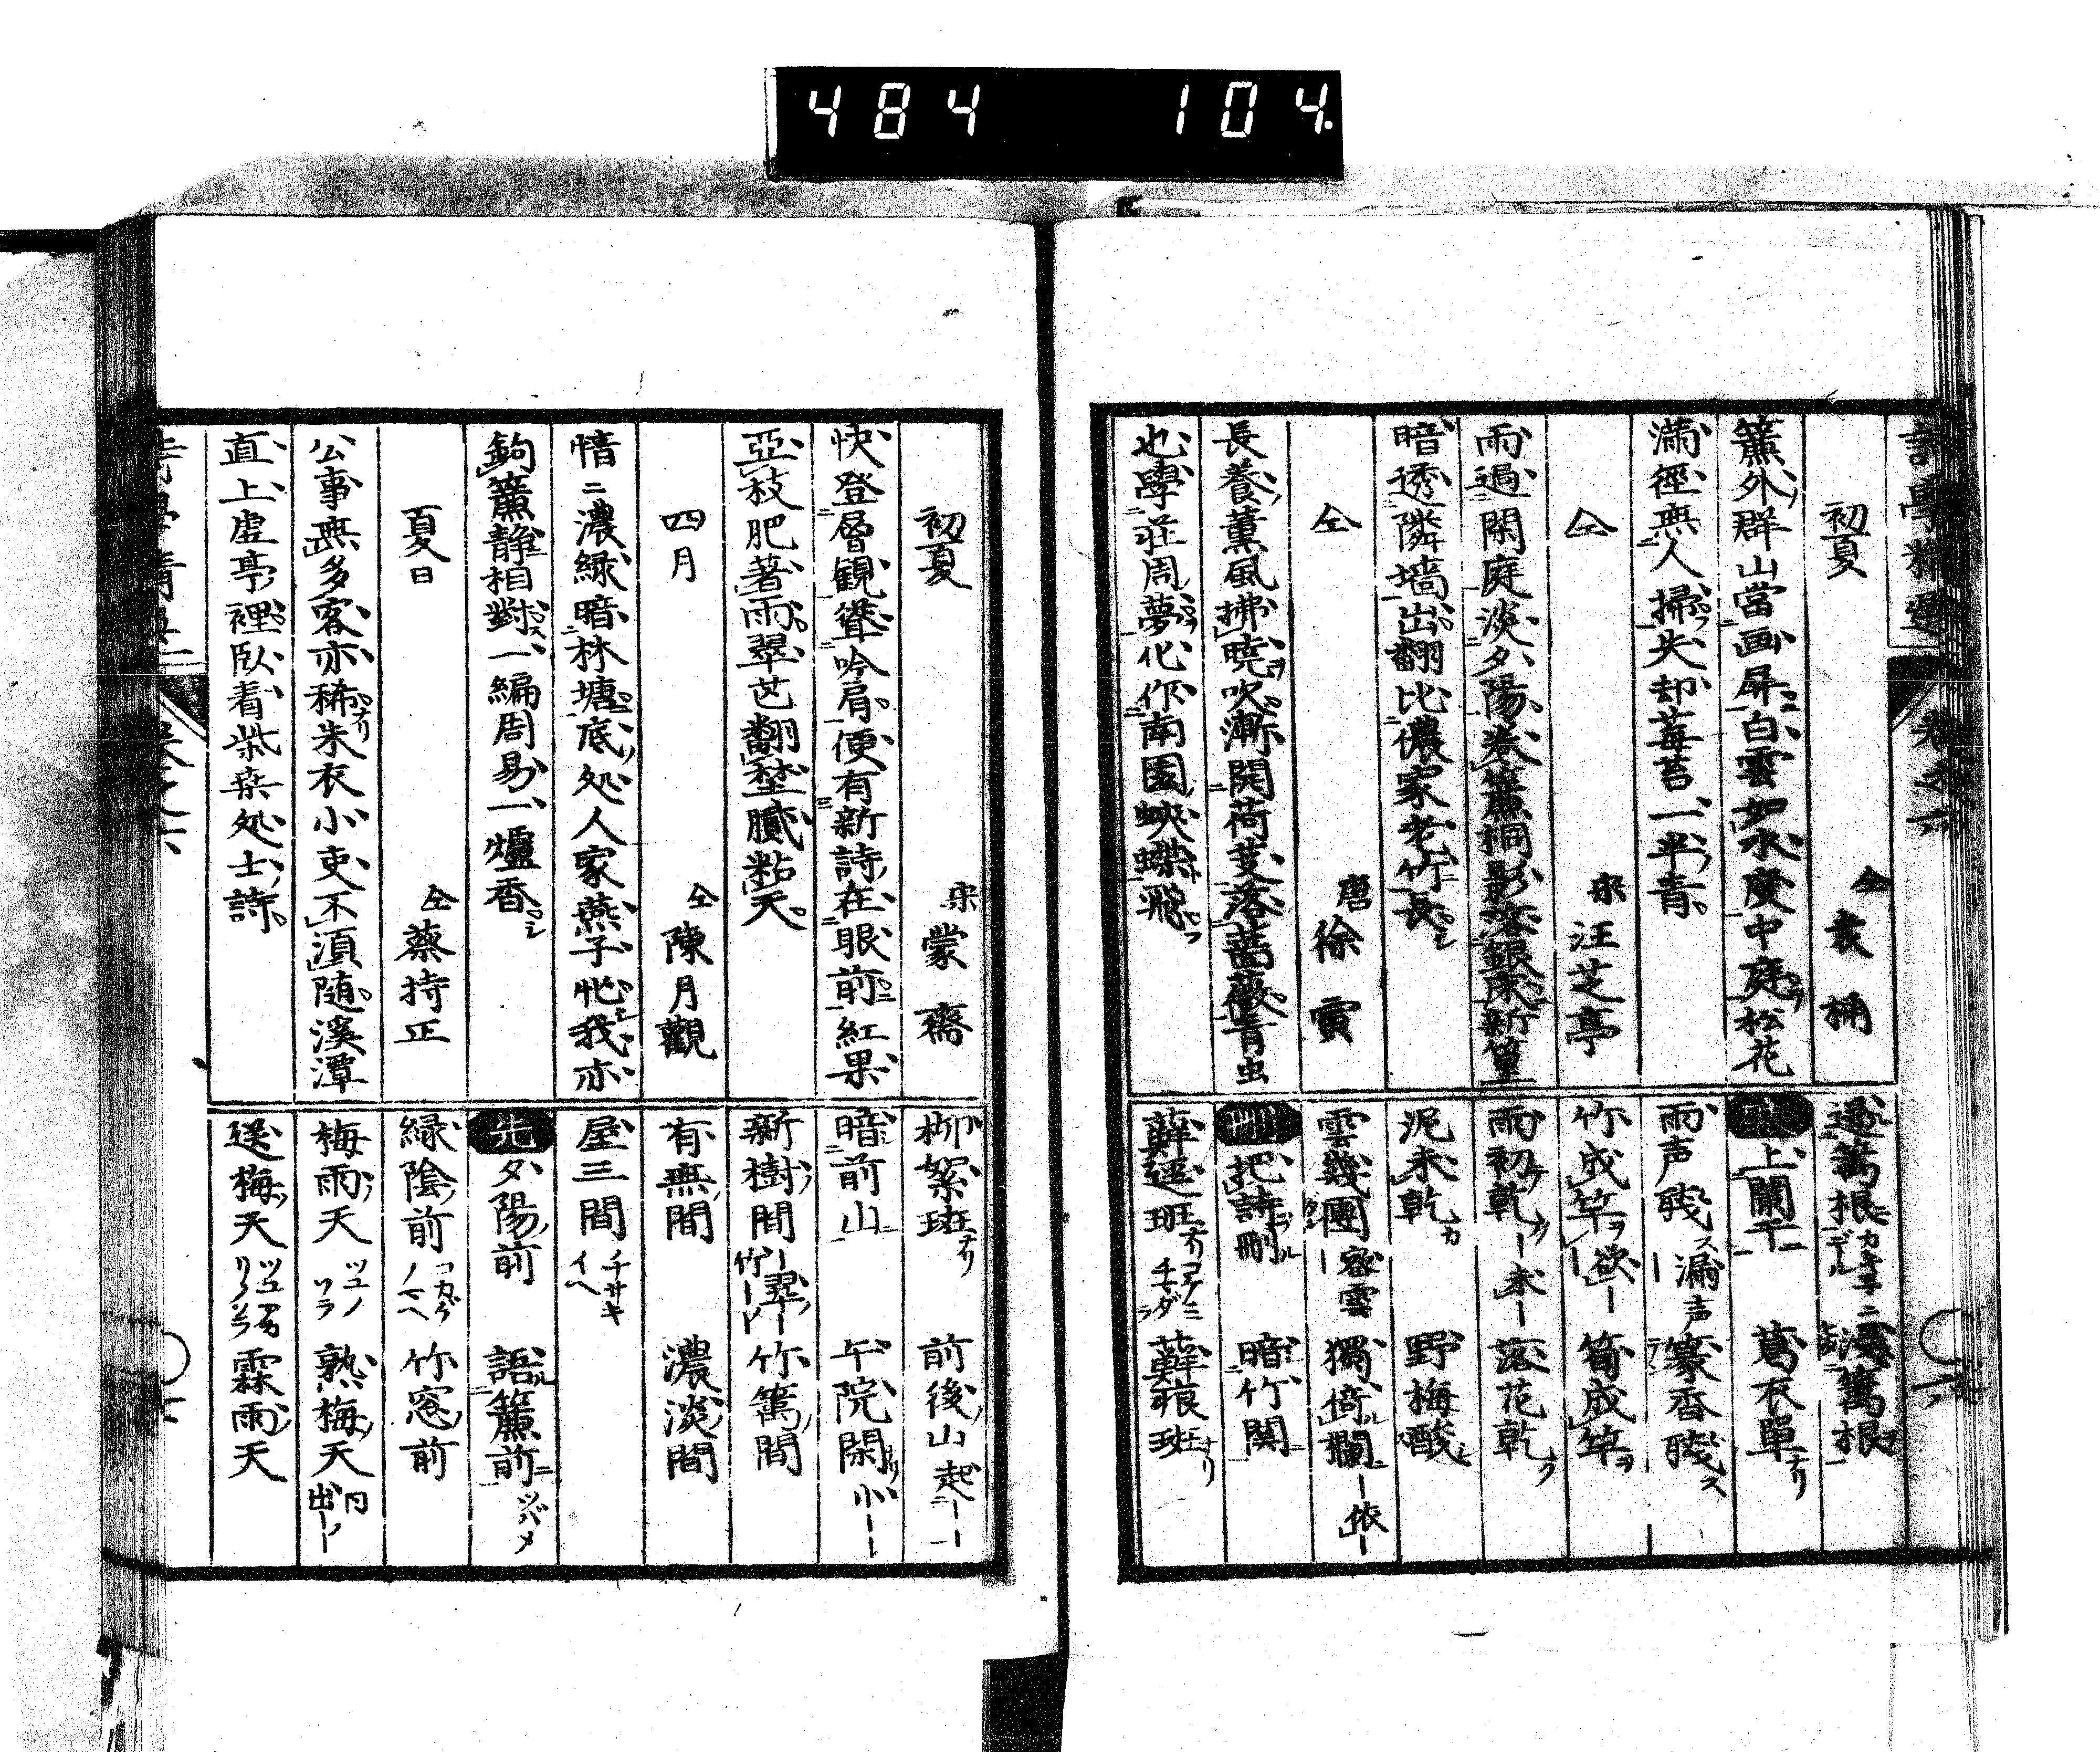 484 104.
初夏 仝 袁桷
簾外群山當画屏白雲如水度中庭松花
滿徑無人掃失却莓苔一半青
仝 宋 汪芝亭
雨過閑庭淡夕陽巻簾桐影落銀床新篁
暗透隣墻出翻比儂家老竹長
仝 唐 徐寅
長養薫風拂暁吹漸開荷芰落薔薇青虫
也學荘周夢化作南園蛺蝶飛
籬根
上闌干 葛衣單
雨声殘 漏声 篆香殘
竹成竿 欲 筍成竿
雨初乾 未 落花乾
泥未乾 野梅酸
雲幾團 密雲 獨倚欄 依
刪 把詩刪 暗竹関
蘚逕班 蘚痕班
初夏 宋 蒙齋
快登層観聳吟肩便有新詩在眼前紅果
亞枝肥著雨翠芭翻埜膩粘天
四月 仝 陳月觀
愔ニ濃緑暗林塘底処人家燕子忙我亦
鉤簾静相對一編周易一爐香
夏日 仝 蔡持正
公事無多客亦稀朱衣小吏不湏随溪潭
直上虚亭裡臥看柴桑処士詩
柳絮班 前後山 起
暗前山 午院閑 小
新樹間 翠 竹 竹籬間
有無間 濃淡間
屋三間 チサキイヘ
先 夕陽前 語簾前 ツバメ
緑陰前 コカゲノマヘ 竹窓前
梅雨天 ツユノソラ 熟梅天 日出
送梅天 霖雨天